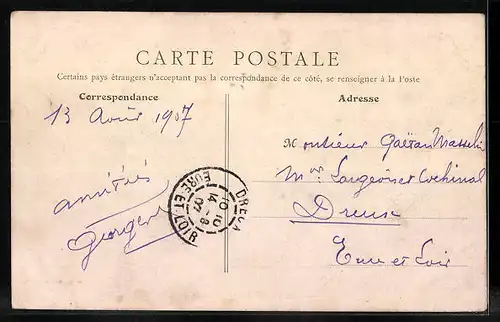 CARTE POSTALE
Certains pays étrangers n'acceptant pas la correspondance de ce côté, se renseigner à la Poste
Correspondance
Adresse
13 Août 1907
amitiés
Georges
Monsieur Gaëtan
Mon
Dreux
Eure et Loir
10 10
14 -8
07
EURE-ET-LOIR